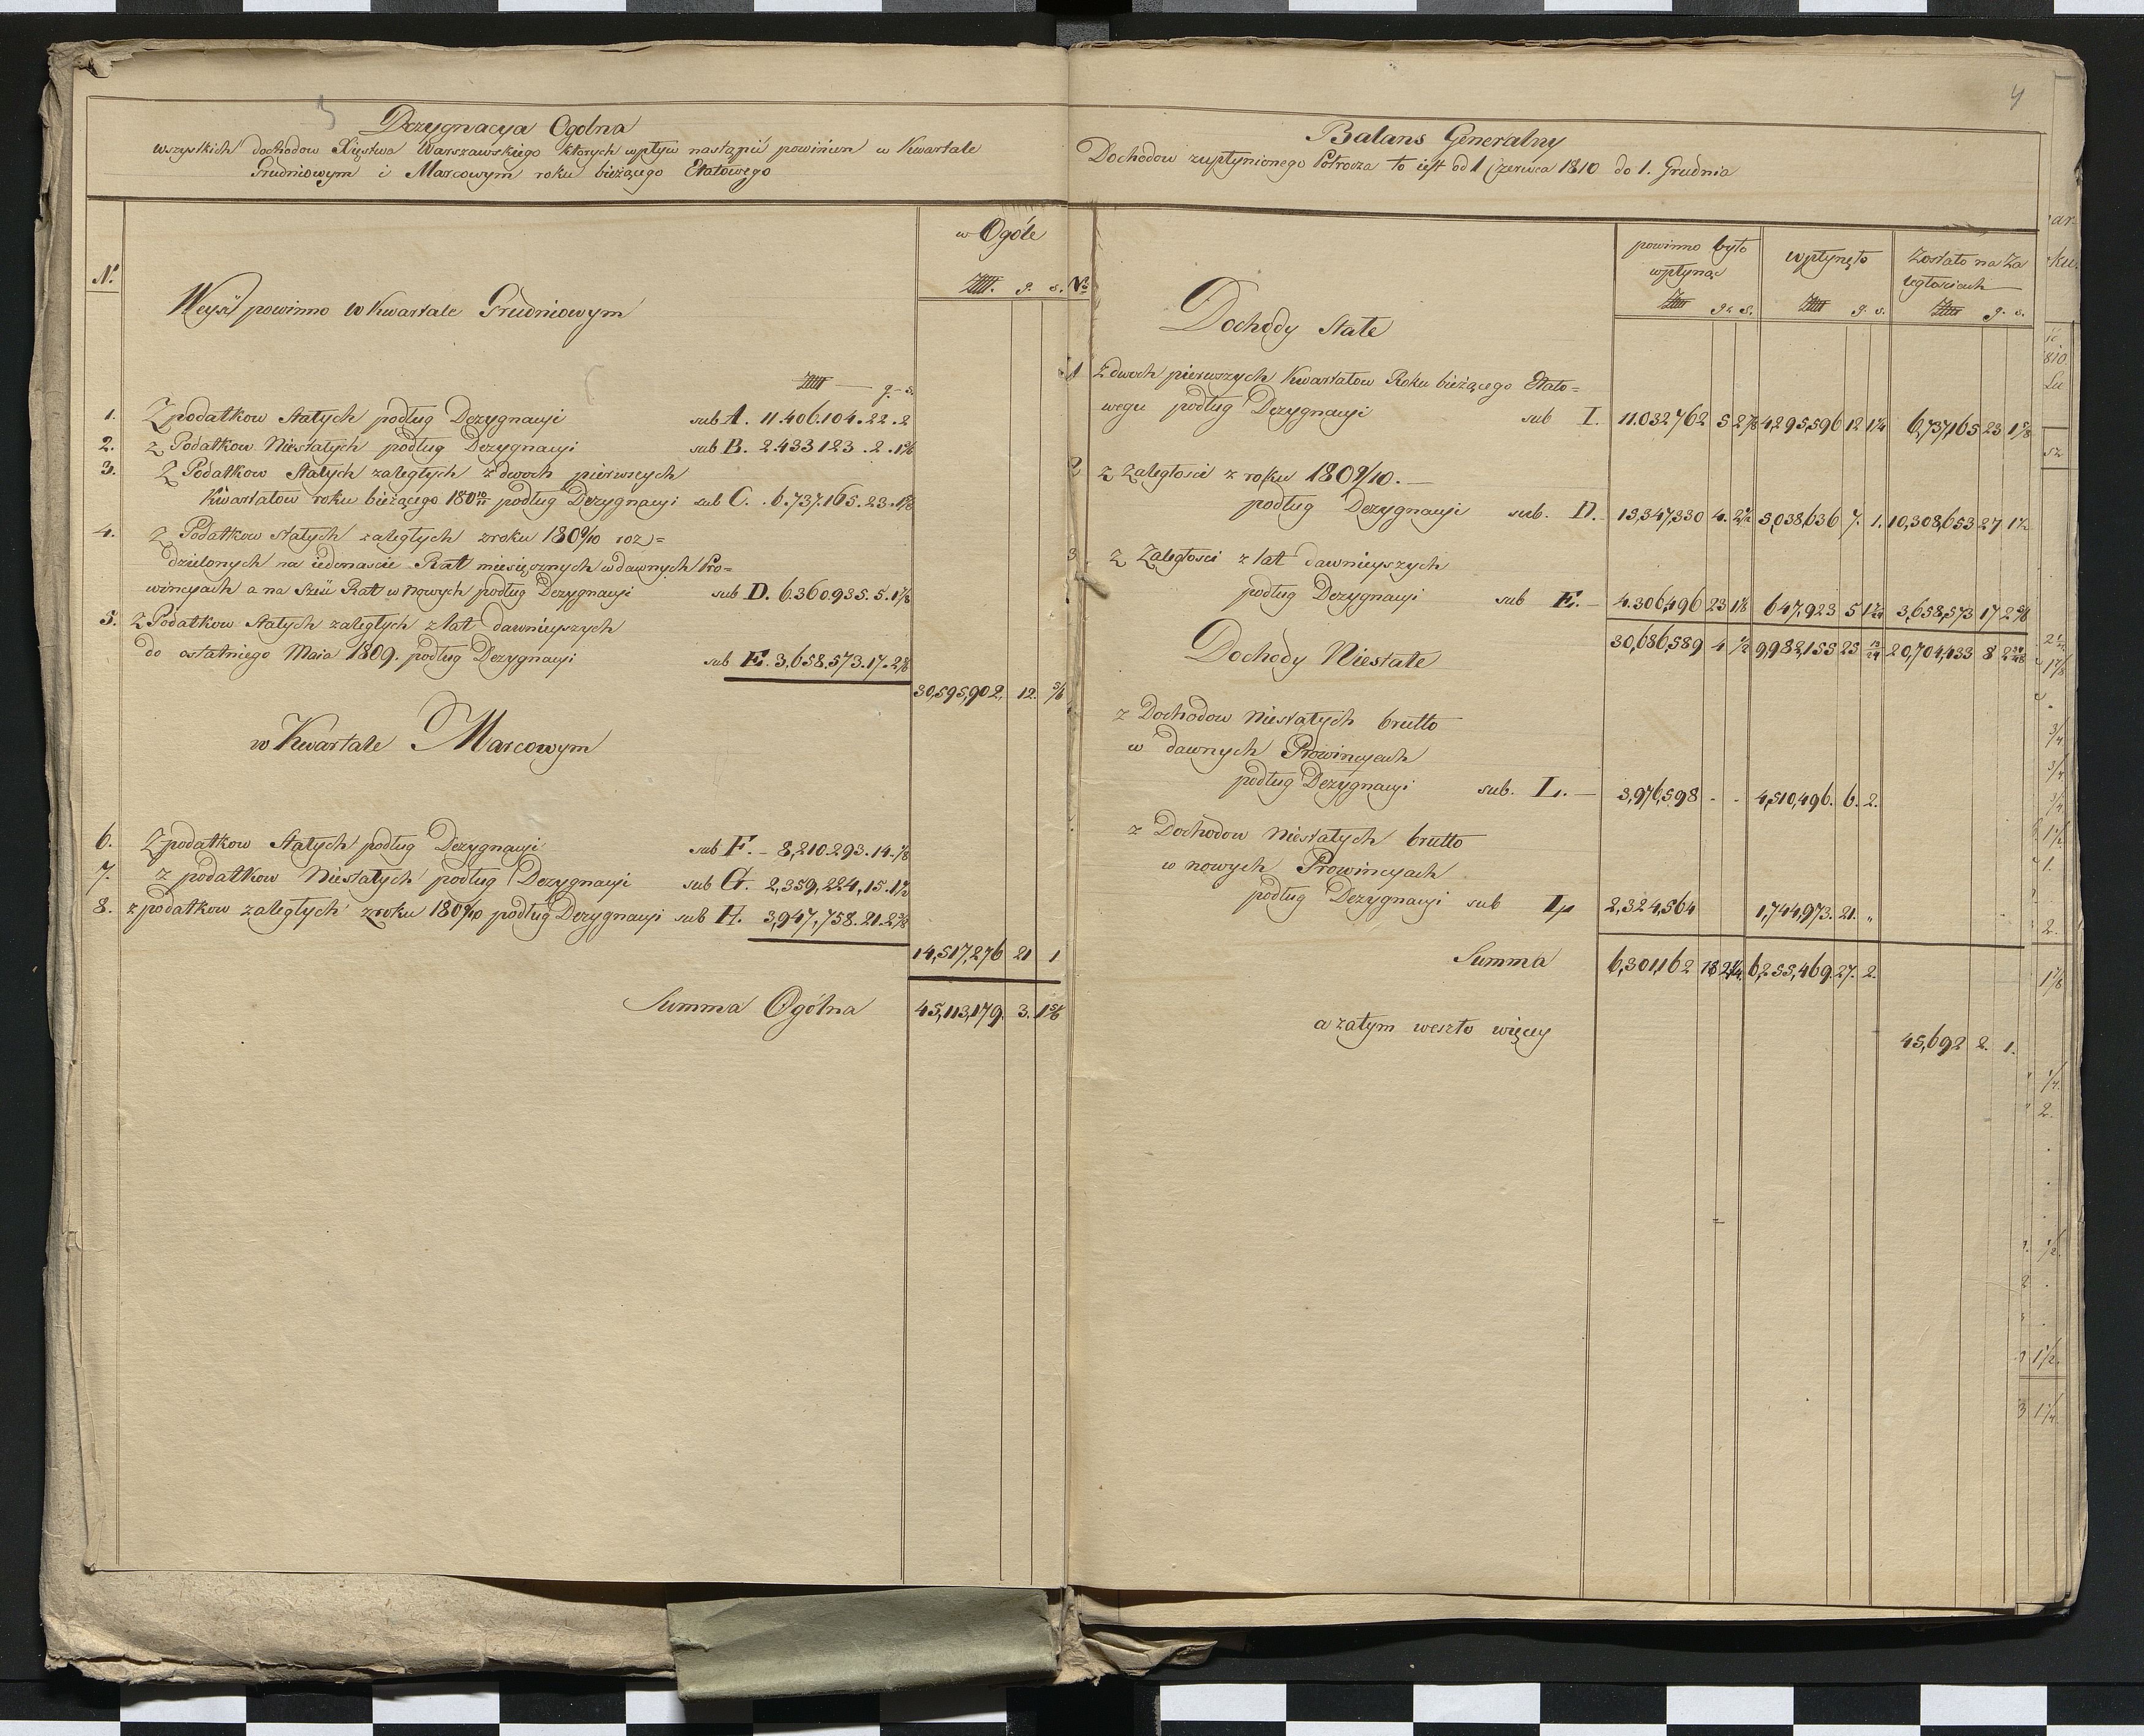 Dezygnacya Ogolna
wszystkich dochodow Xięstwa Warszawskiego ktorych wpływ nastąpić powinien w Kwartale
Grudniowym i Marcowym roku bieżącego Etatowego
w Ogóle
N.
g. s.
Weyść powinno w Kwartale Grudniowym
g. s.
1. Z podatkow stałych podług Dezygnacyi sub A. 11.406.104.22.2
2. z Podatkow Niestałych podług Dezygnacyi sub B. 2.433.123.2.1
3. Z Podatkow stałych zaległych z dwoch pierwszych
Kwartałow roku bieżącego 18 10/11 podług Dezygnacyi sub C. 6.737.165.23.1 5/8
4. Z Podatkow stałych zaległych z roku 1809/10 roz=
dzielonych na iedenascie Rat miesięcznych w dawnych Pro=
wincyach a na sześć Rat w nowych podług Dezygnacyi sub D. 6.360.935.5.1 7/8
5. z Podatkow stałych zaległych z lat dawnieyszych
do ostatniego Maia 1809. podług Dezygnacyi sub E. 3,658,573.17.2
30,595,902. 12. 5/6
w Kwartale Marcowym
6. Z podatkow stałych podług Dezygnacyi sub F. 8,210.293.14.
7. z podatkow Niestałych podług Dezygnacyi sub G. 2,359,224,15.1 1/2
8. z podatkow zaległych z roku 1809/10 podług Dezygnacyi sub H. 3,947,758.21.2
14,517,276 21 1
Summa Ogólna 45,113,179. 3. 1 5/6
4
Balans Generalny
Dochodow zupłynionego Połrocza to iest od 1 Czerwca 1810 do 1. Grudnia
powinno było wpłynąć
wpłynęło
Zostało na Za
ległościach
No
gr. s. g. s. g. s.
Dochody stałe
1 z dwoch pierwszych Kwartałow Roku bieżącego Etato=
wego podług Dezygnacyi sub I. 11.032762 5 2 7/8 4,295,596 12 1 1/4 6,737,165 23 1 5/8
2 z Zaległości z roku 1809/10.
podług Dezygnacyi sub. D. 15,347,330 4. 2 1/2 5,038,636 7. 1. 10,308,653 27 1 1/2
3. z Zaległości z lat dawnieyszych
podług Dezygnacyi sub E. 4.306,496 23 1 1/8 647,923 5 1 3,658,573 17 2
30,686,589 4 1/2 9,982,155 25 20,704,433 8 2
Dochody Niestałe
z Dochodow Niestałych brutto
w dawnych Prowincyach
podług Dezygnacyi sub. L. 3,976,598 - - 4,510,496. 6. 2.
z Dochodow Niestałych brutto
w nowych Prowincyach
podług Dezygnacyi sub 2,324,564 1,744,973. 21. "
Summa 6,301,162 6,255,469. 27. 2.
a zatym weszło więcey 45,692 2. 1.